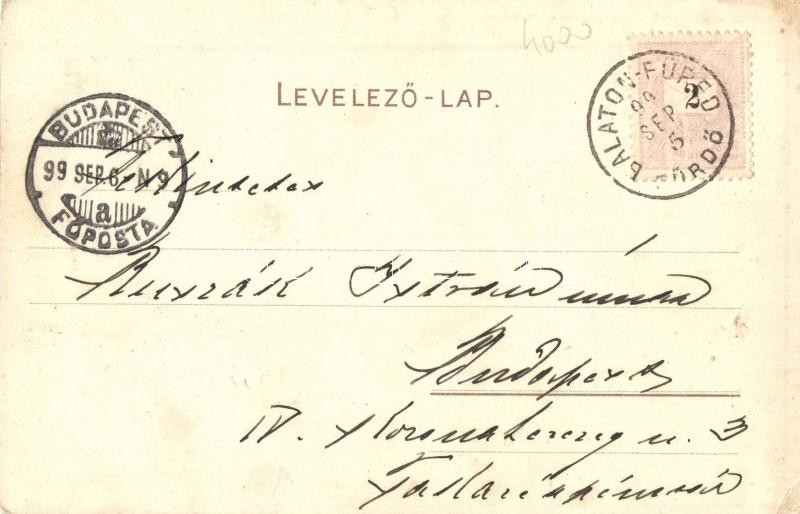 4000
LEVELEZŐ-LAP.
BALATON-FÜRED FÜRDŐ
99 SEP 5
2
BUDAPEST
99 SEP. 6. N 9
a
FŐPOSTA
Tekintetes
István úrnak
Budapest
IV. Koronaherczeg u. 3
Takarékpénztár